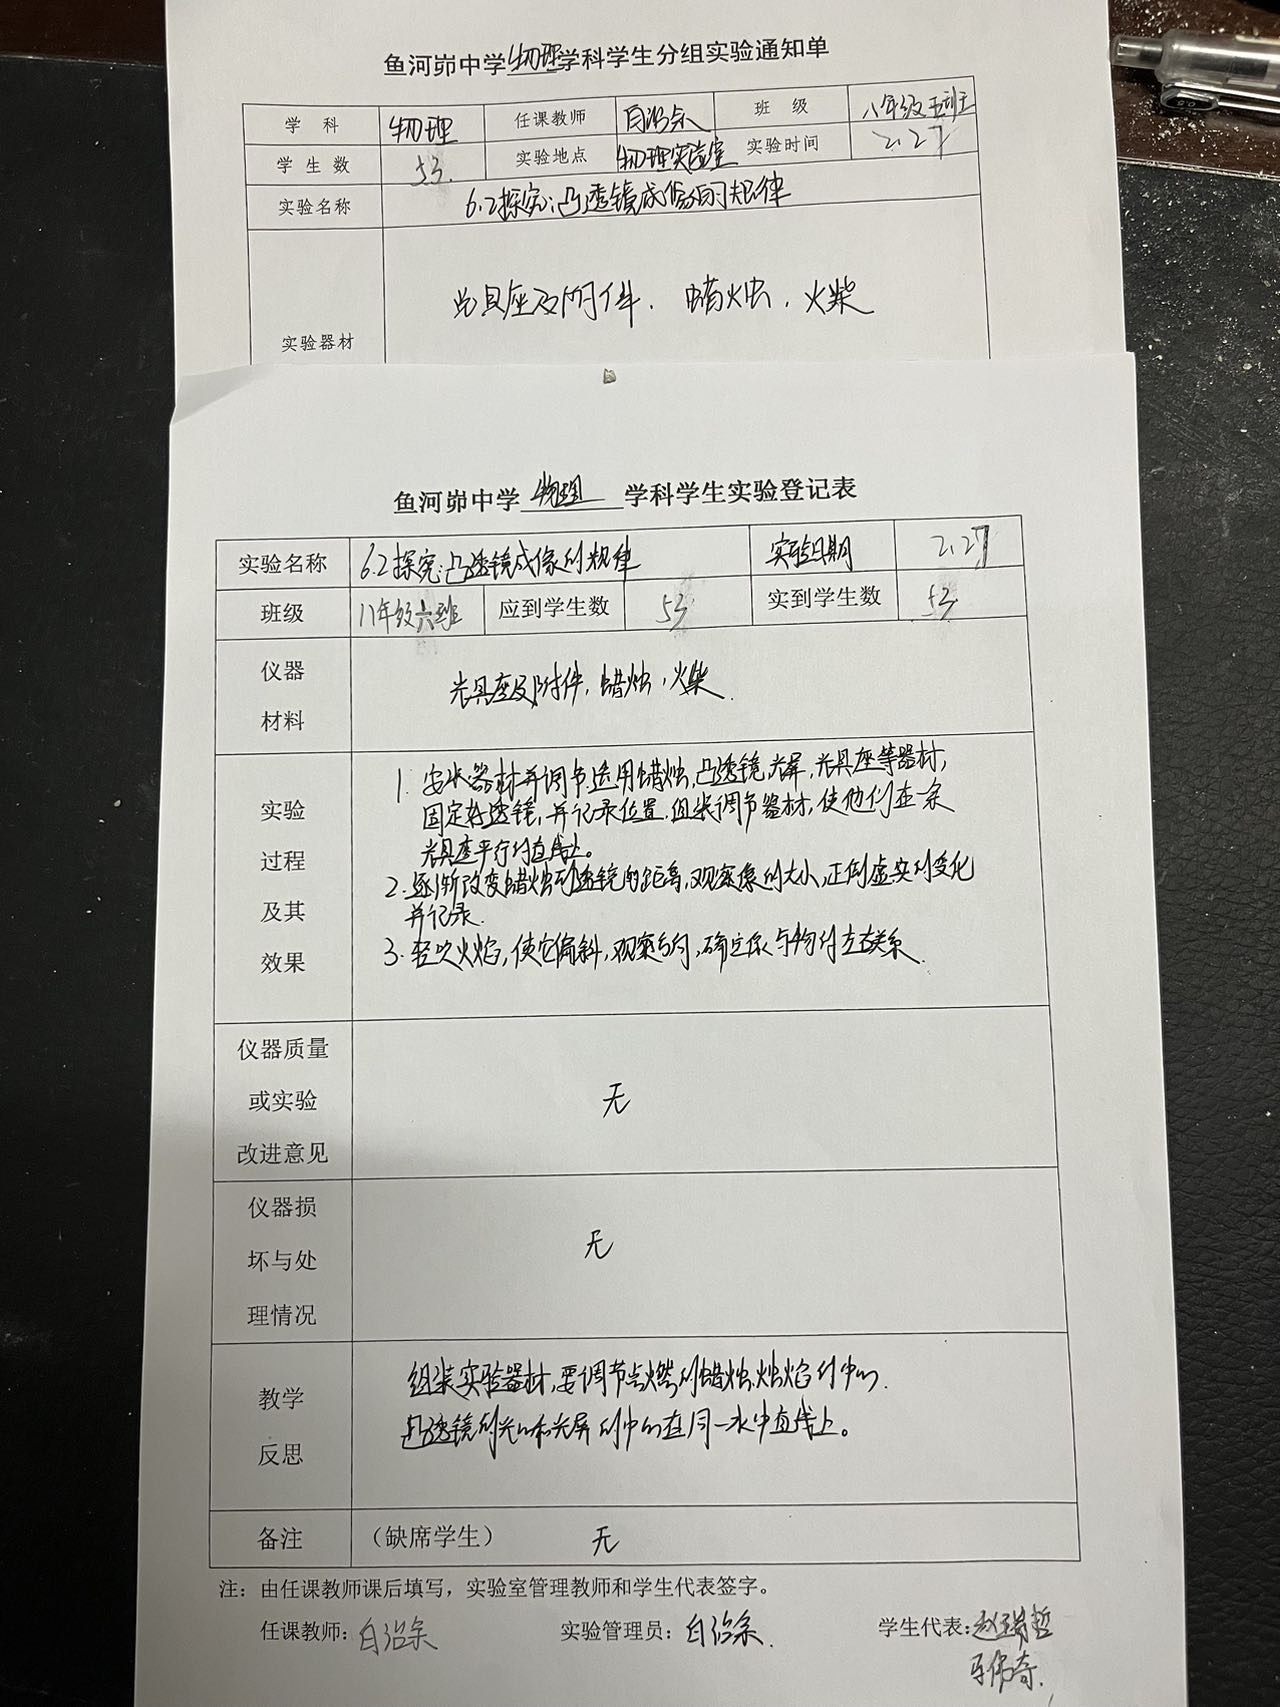 鱼河峁中学物理学科学生分组实验通知单
学 科 物理 任课教师 白治余 班 级 八年级五班
学 生 数 53. 实验地点 物理实验室 实验时间 2.27
实验名称 6.2探究:凸透镜成像的规律
光具座及附件、蜡烛、火柴
实验器材
鱼河峁中学 物理 学科学生实验登记表
实验名称 6.2探究:凸透镜成像的规律 实验日期 2.27
班级 八年级六班 应到学生数 53 实到学生数 53
仪器
材料
光具座及附件,蜡烛,火柴.
实验
过程
及其
效果
1. 安装器材并调节运用蜡烛,凸透镜,光屏,光具座等器材,
固定好透镜,并记录位置.组装调节器材,使他们在一条
光具座平行的直线上。
2.逐渐改变蜡烛到透镜的距离,观察像的大小,正倒虚实的变化
并记录.
3.轻吹火焰,使它偏斜,观察方向,确定像与物的左右关系.
仪器质量
或实验
改进意见
无
仪器损
坏与处
理情况
无
教学
反思
组装实验器材,要调节点燃的蜡烛,烛焰的中心.
凸透镜的光心和光屏的中心在同一水中直线上。
备注 (缺席学生) 无
注:由任课教师课后填写,实验室管理教师和学生代表签字。
任课教师: 白治余 实验管理员: 白治余. 学生代表:赵瑞哲